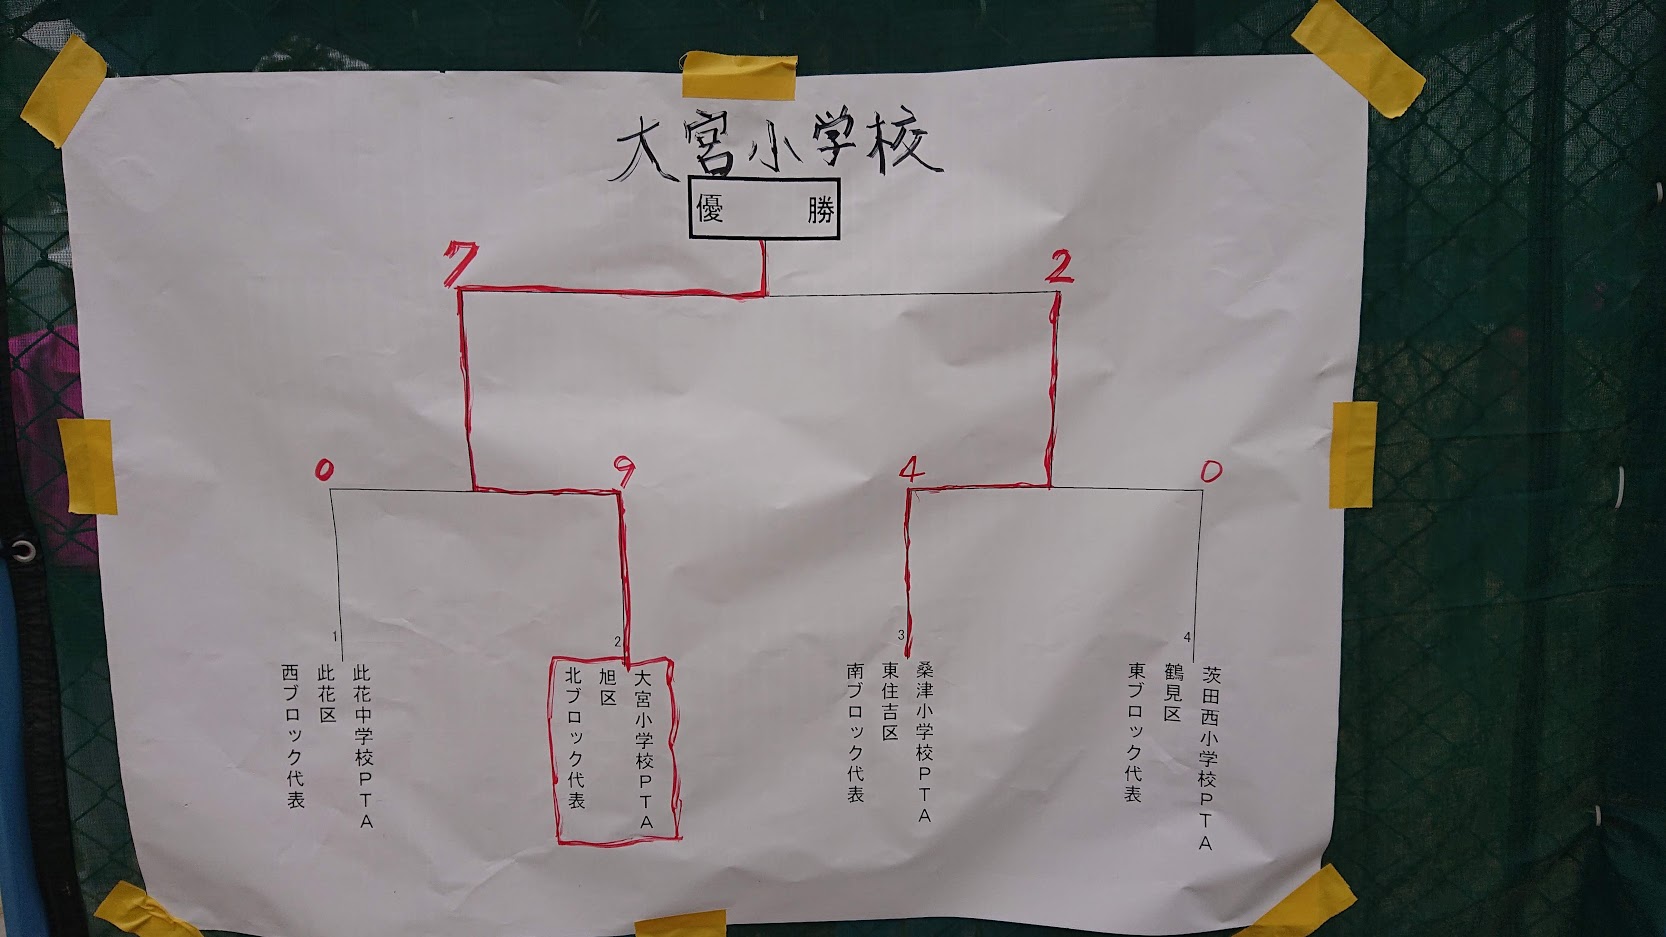 大宮小学校
優 勝
7
2
0
9
4
0
1
2
3
4
此花中学校PTA
此花区
西ブロック代表
大宮小学校PTA
旭区
北ブロック代表
桑津小学校PTA
東住吉区
南ブロック代表
茨田西小学校PTA
鶴見区
東ブロック代表